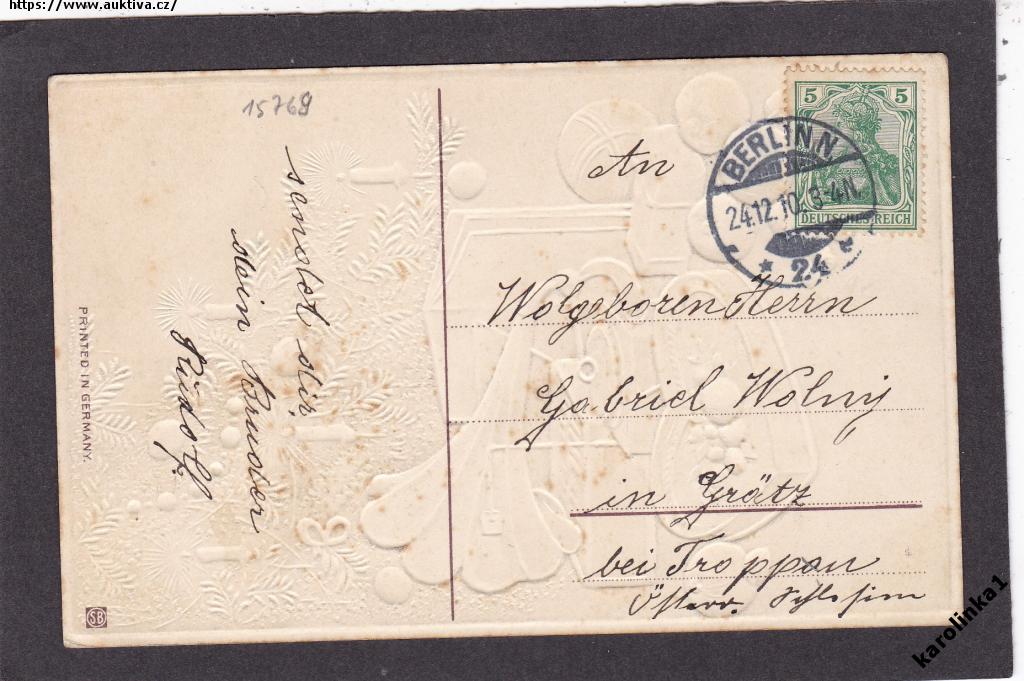 https://www.auktiva.cz/
15768
sendet dir
dein Bruder
Rudolf.
PRINTED IN GERMANY.
SB
An
5 5
DEUTSCHES REICH
BERLIN N
24.12.10. 3-4N.
* 24
Wolgeboren Herrn
Gabriel Wolny
in Grätz
bei Troppau
Österr. Schlesien
karolinka1